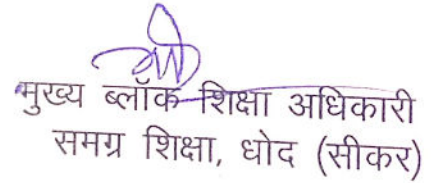 मुख्य ब्लॉक शिक्षा अधिकारी
समग्र शिक्षा, धोद (सीकर)